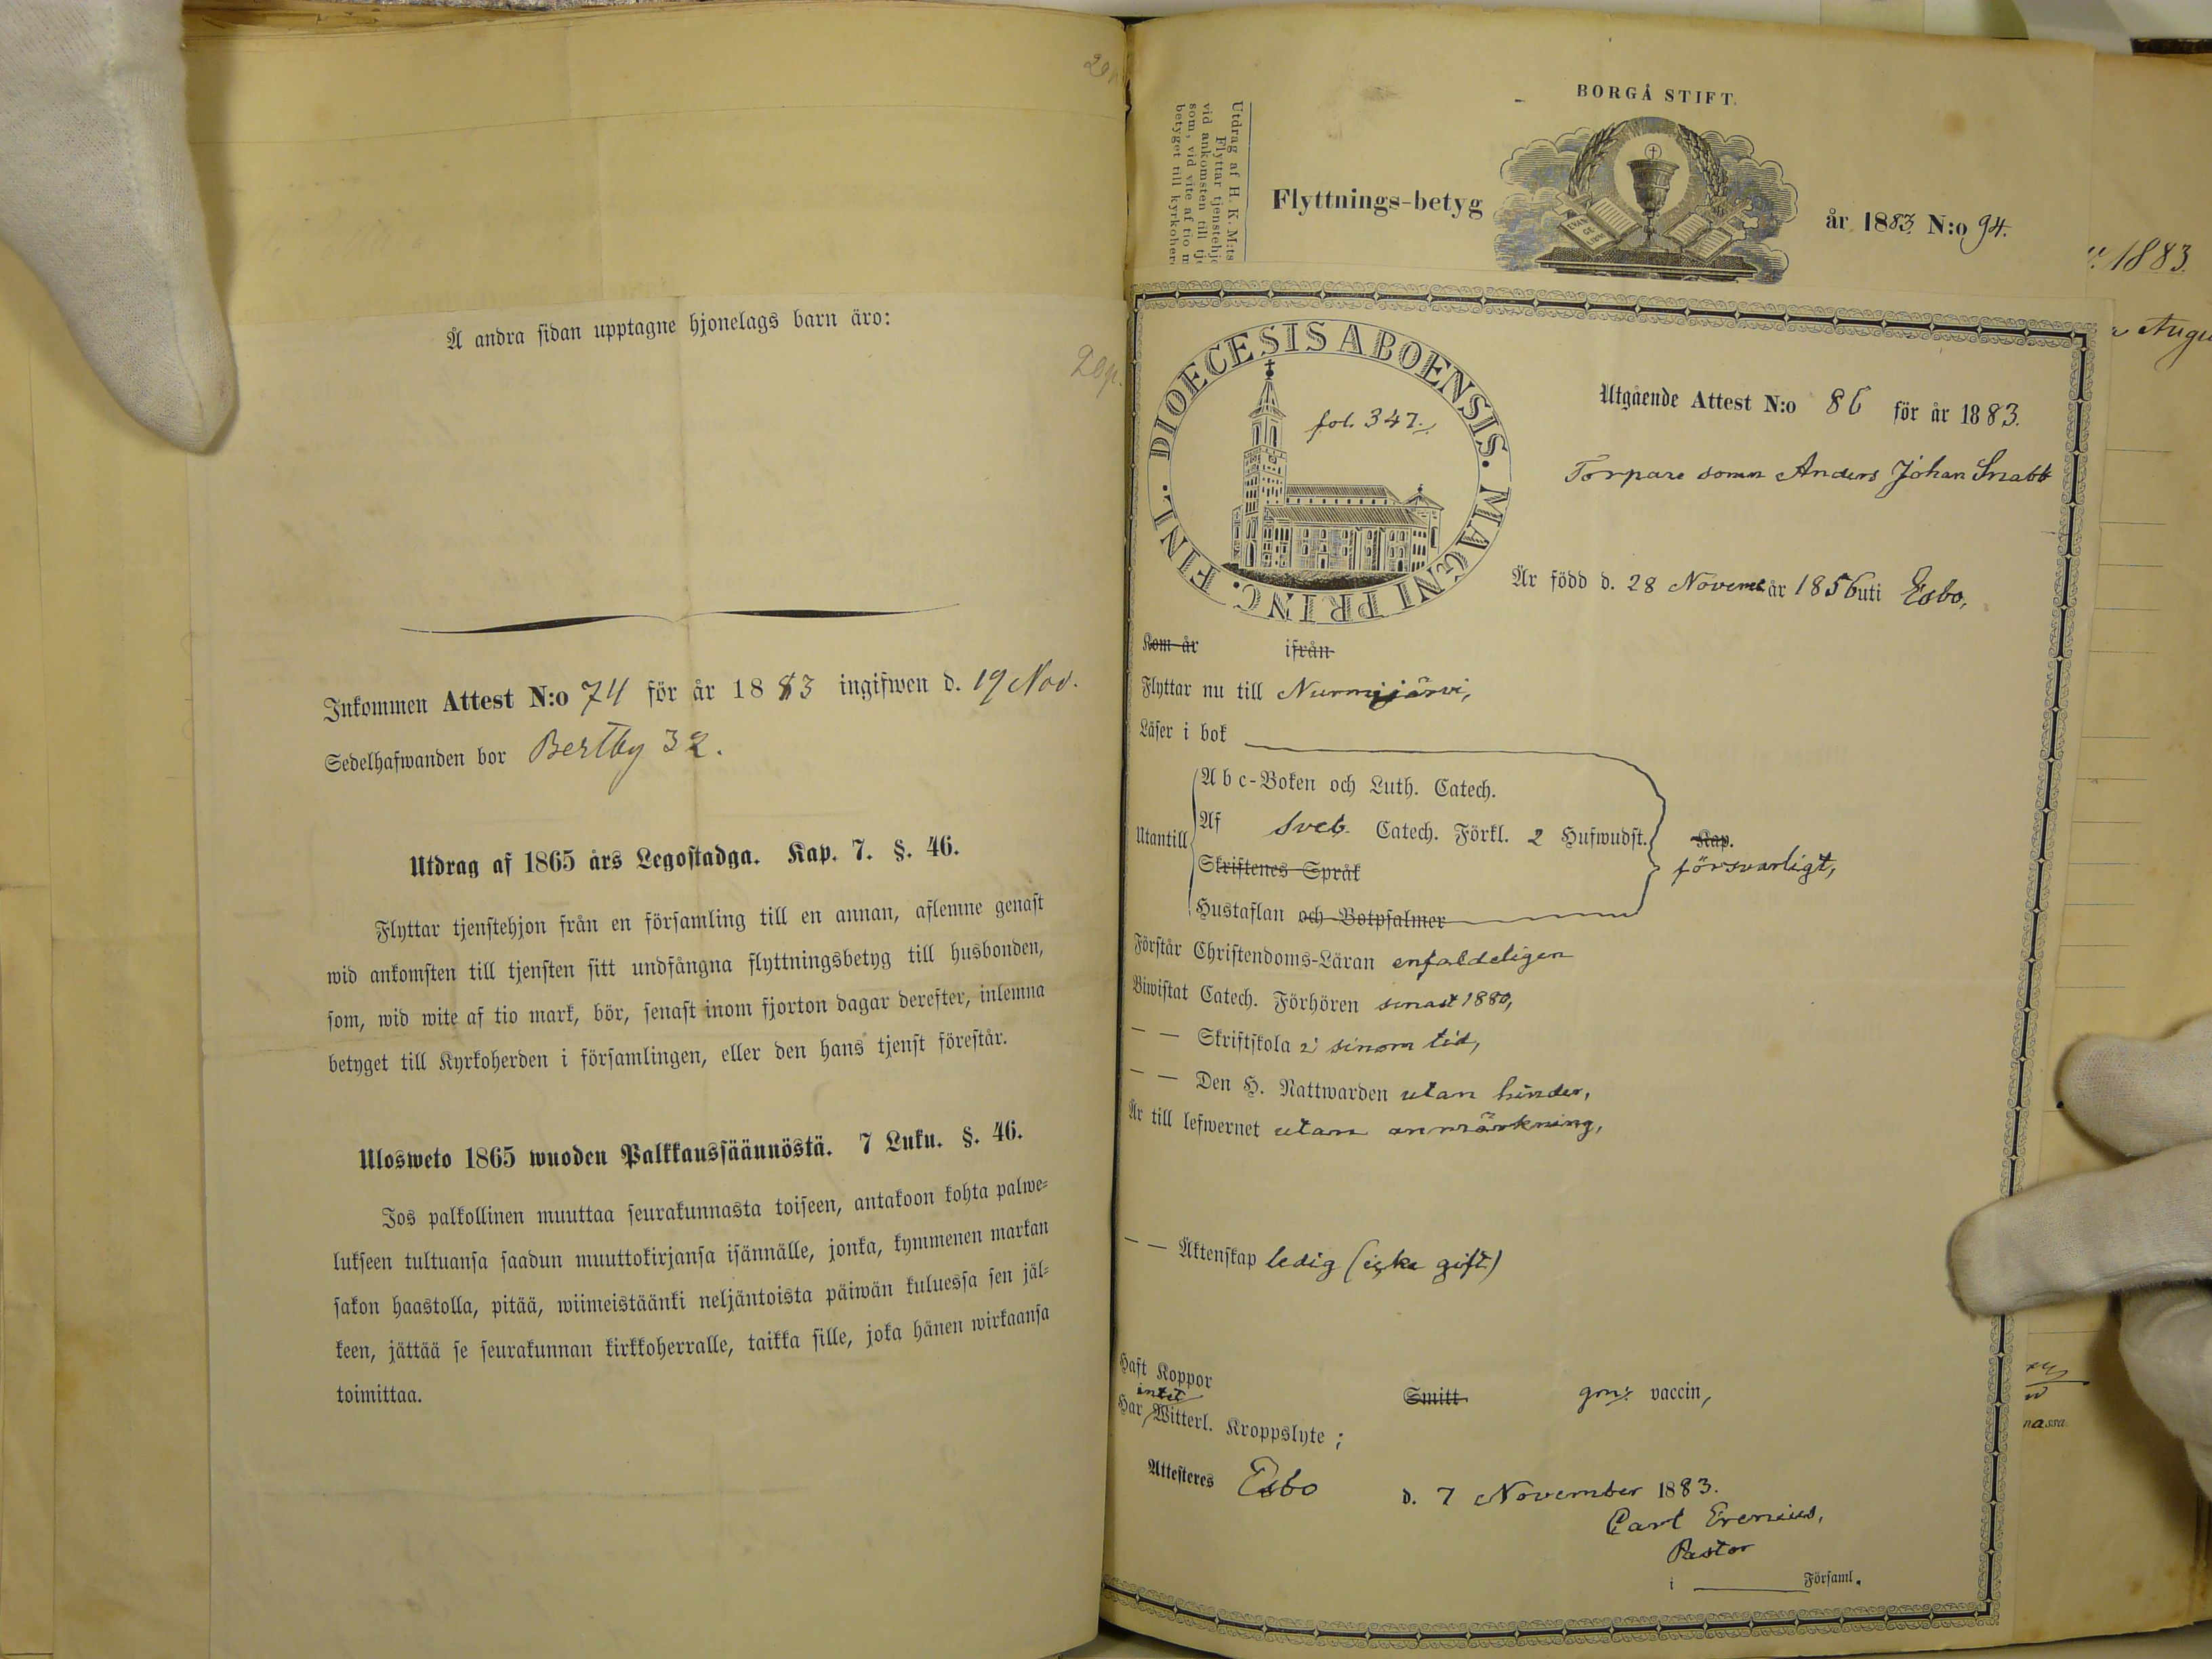 Å andra sidan upptagne hjonelags barn äro:
Inkommen Attest N:o 74 för år 1883 ingifwen d. 19 Nov.
Sedelhafwanden bor Bertby 32.
Utdrag af 1865 års Legostadga. Kap. 7. §. 46.
Flyttar tjenstehjon från en församling till en annan, aflemne genast
wid ankomsten till tjensten sitt undfångna flyttningsbetyg till husbonden,
som, wid wite af tio mark, bör, senast inom fjorton dagar derefter, inlemna
betyget till Kyrkoherden i församlingen, eller den hans tjenst förestår.
Ulosweto 1865 wuoden Palkkaussäännöstä. 7 Luku. §. 46.
Jos palkollinen muuttaa seurakunnasta toiseen, antakoon kohta palwe-
lukseen tultuansa saadun muuttokirjansa isännälle, jonka, kymmenen markan
sakon haastolla, pitää, wiimeistäänki neljäntoista päiwän kuluessa sen jäl-
keen, jättää se seurakunnan kirkkoherralle, taikka sille, joka hänen wirkaansa
toimittaa.
BORGÅ STIFT.
Utdrag af H. K. M:ts
Flyttar tjenstehjo
vid ankomsten till tje
som, vid vite af tio m
betyget till kyrkoher
Flyttnings-betyg
EVAN
GE
LIUM
år 1883 N:o 94.
DIOECESIS ABOENSIS. MAGNI PRINC. FINL.
fol. 347.
Utgående Attest N:o 86 för år 1883.
Torpare sonen Anders Johan Snabb
Är född d. 28 Novemb år 1856 uti Esbo,
Kom år ifrån
Flyttar nu till Nurmijärvi,
Läser i bok
Utantill
Abc-Boken och Luth. Catech.
Af Sveb. Catech. Förkl. 2 Hufwudst.
Skriftenes Språk
Hustaflan och Botpsalmer
Kap.
försvarligt,
Förstår Christendoms-Läran enfaldeligen
Biwistat Catech. Förhören senast 1880,
— — Skriftskola i sinom tid,
— — Den H. Nattwarden utan hinder,
Är till lefwernet utan anmärkning,
— — Äktenskap ledig (icke gift)
Haft Koppor Smitt gm vaccin,
intet
Har Witterl. Kroppslyte;
Attesteres Esbo d. 7 November 1883.
Carl Erenius,
Pastor
i Församl.
1883.